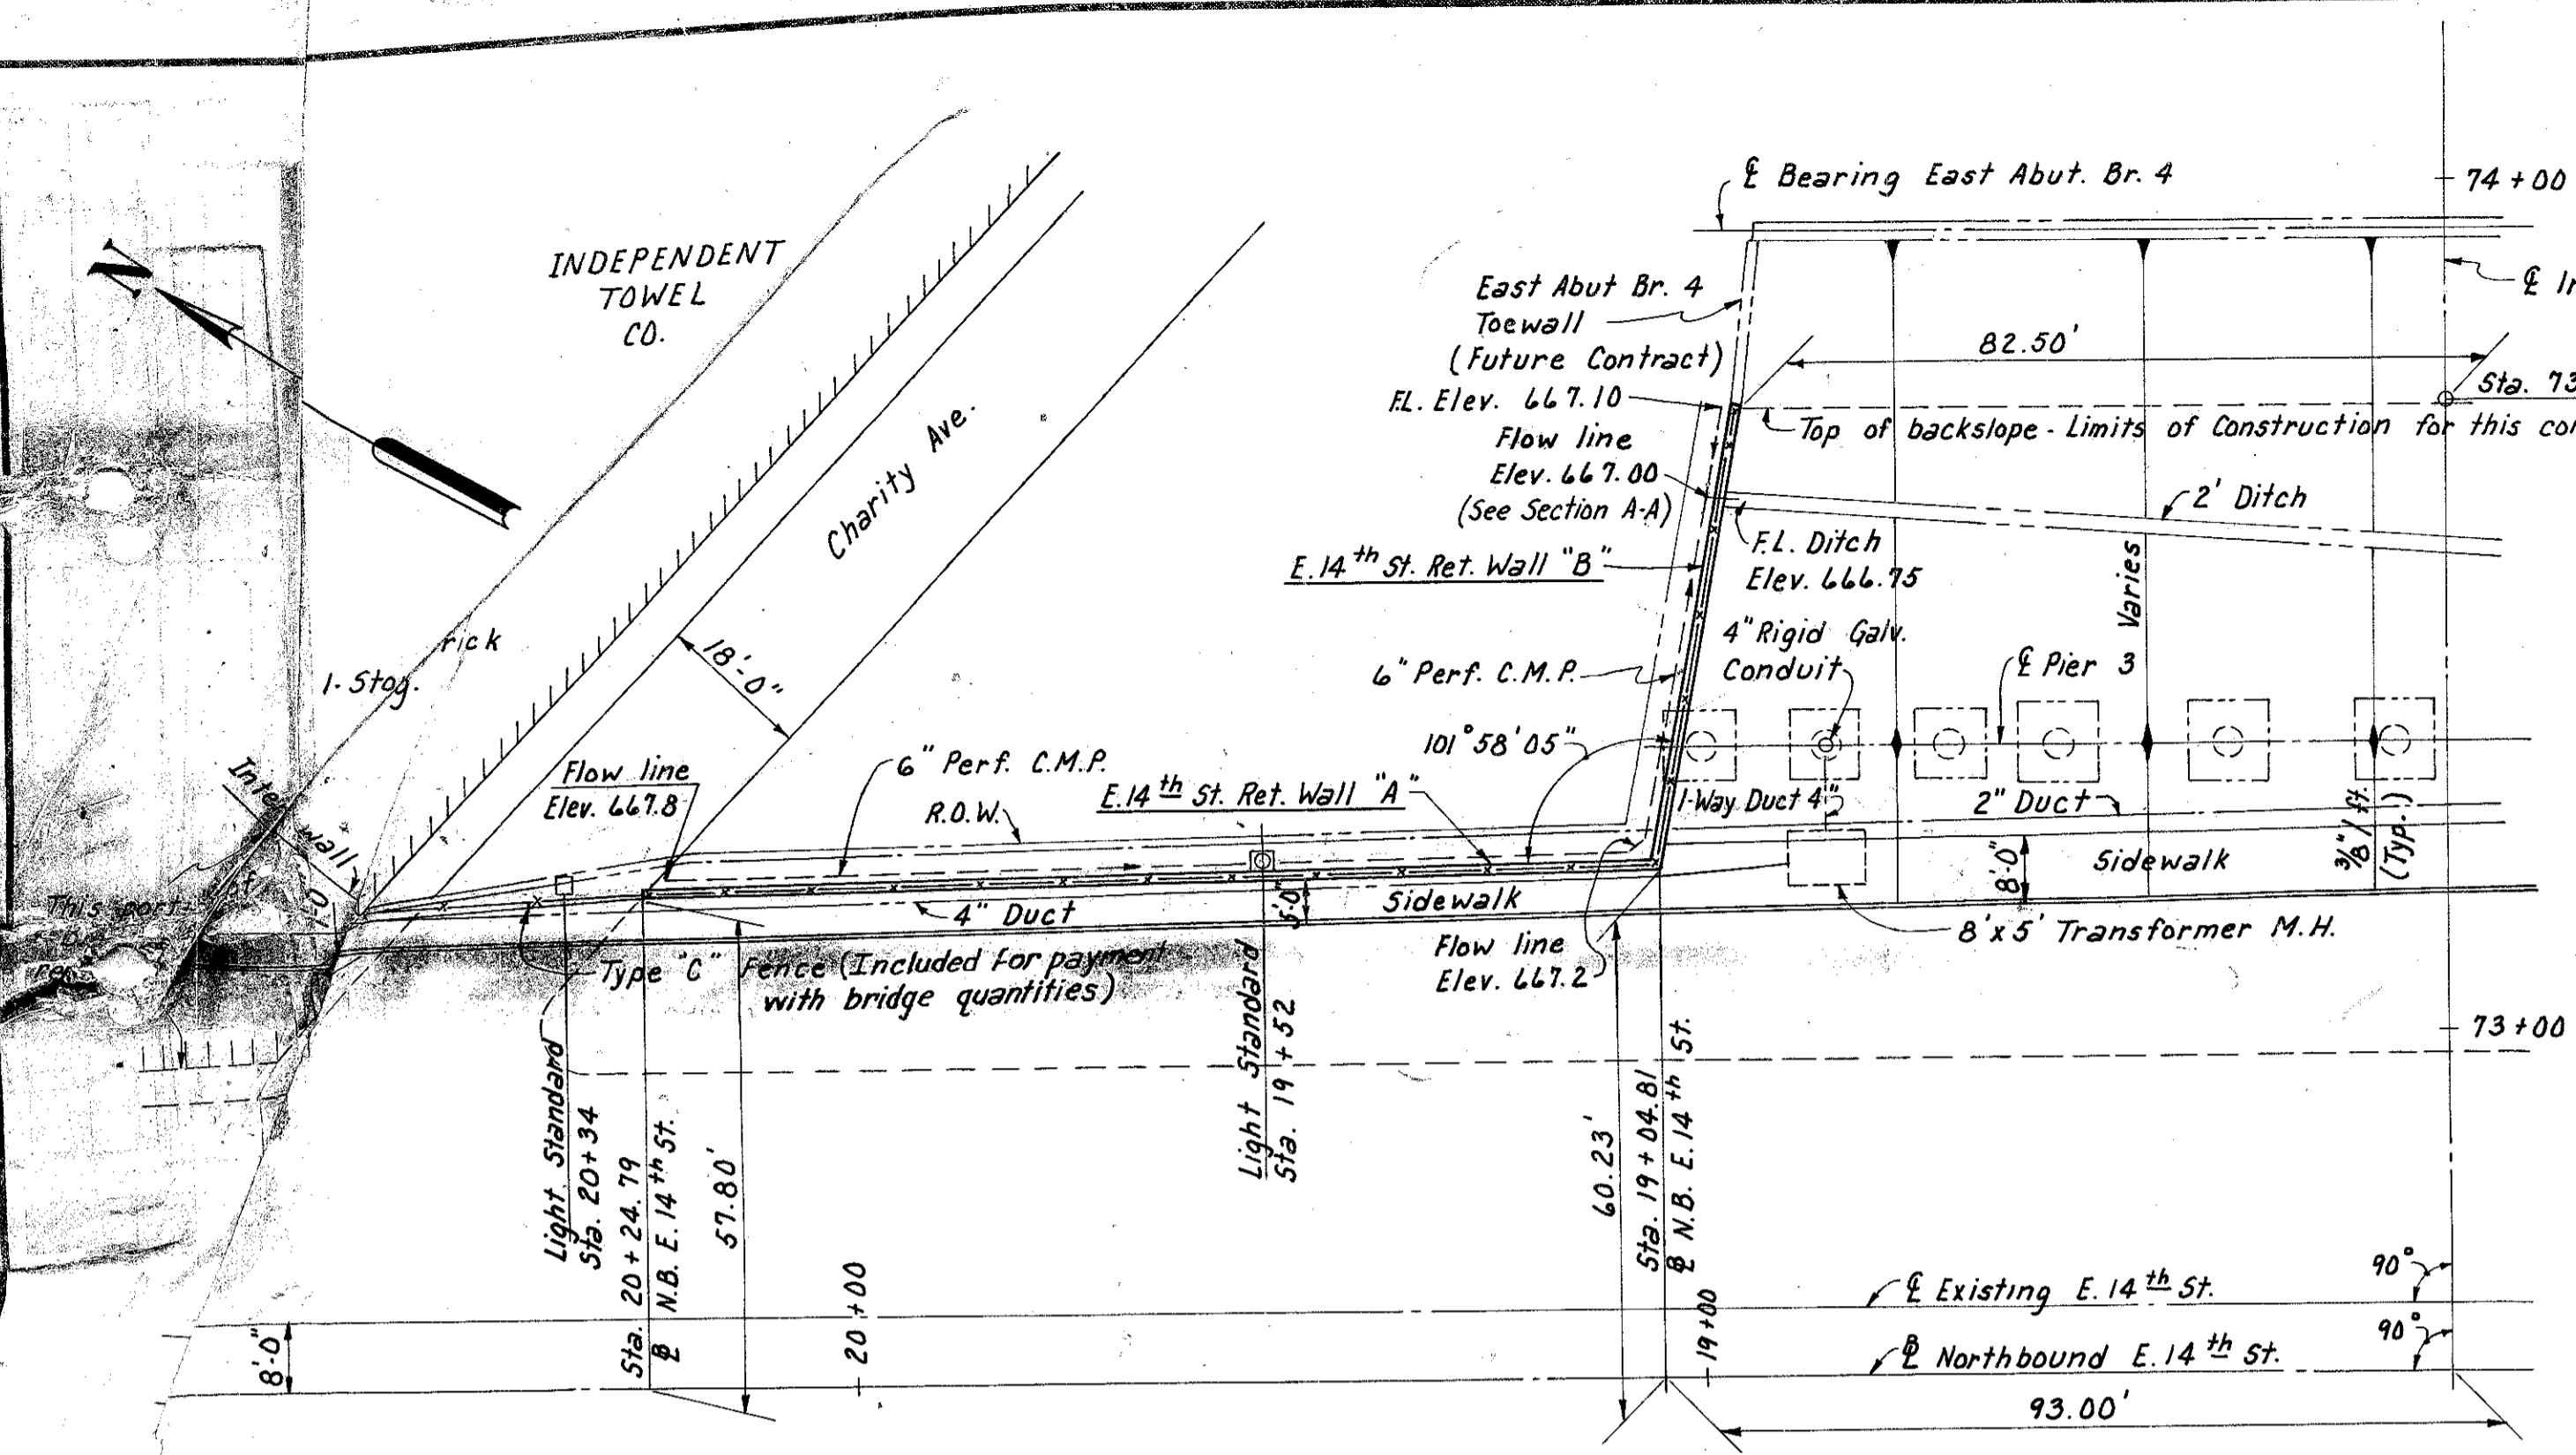 N
INDEPENDENT
TOWEL
CO.
Charity Ave.
18'-0"
rick
1-Stog.
wall
This port
Flow line
Elev. 667.8
6" Perf. C.M.P.
R.O.W.
E. 14th St. Ret. Wall "A"
101°58'05"
4" Duct
Sidewalk
5'-0"
Type "C" Fence (Included for payment
with bridge quantities)
Flow line
Elev. 667.2
Light Standard
Sta. 20+34
Sta. 20+24.79
℄ N.B. E. 14th St.
57.80'
Light Standard
Sta. 19+52
60.23'
Sta. 19+04.81
℄ N.B. E. 14th St.
8'-0"
20+00
19+00
℄ Bearing East Abut. Br. 4
74+00
East Abut Br. 4
Toewall
(Future Contract)
82.50'
F.L. Elev. 667.10
Sta. 73
Top of backslope - Limits of Construction for this
Flow line
Elev. 667.00
(See Section A-A)
2' Ditch
F.L. Ditch
Elev. 666.75
E. 14th St. Ret. Wall "B"
Varies
4" Rigid Galv.
Conduit
6" Perf. C.M.P.
℄ Pier 3
1-Way Duct 4"
2" Duct
8'-0"
Sidewalk
3/8"/ft.
(Typ.)
8'x5' Transformer M.H.
73+00
℄ Existing E. 14th St.
90°
℄ Northbound E. 14th St.
90°
93.00'